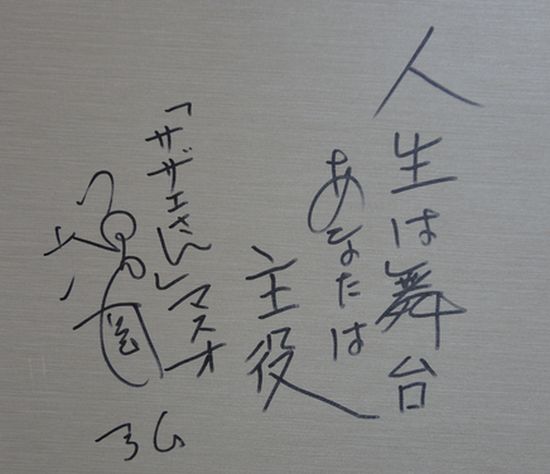 人生は舞台
あなたは
主役
「サザエさん」マスオ
弘